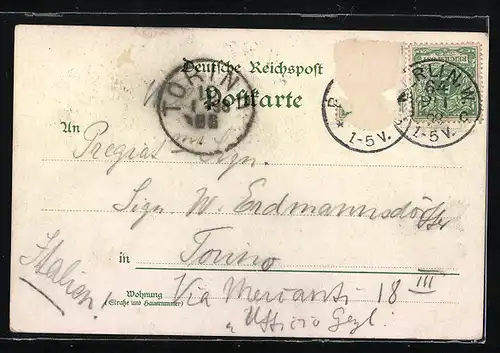 Deutsche Reichspost
Postkarte
TORINO
BERLIN W.
64
1-5 V.
1-5 V.
An
Pregiat. Sign.
Sign. W. Erdmannsdörffer
in Torino
Italien!
Wohnung
(Straße und Hausnummer)
Via Mercanti 18 III
"Ufficio Gegl.